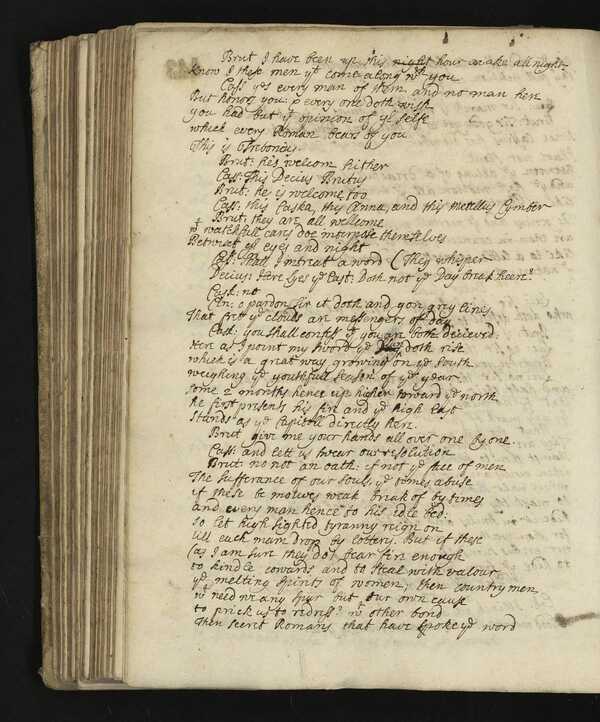 Brut I have been up this night hour awake all night
know I these men yt come along wth you
Cass yes every man of them and no man here
But honors you: & every one doth wish
you had but yt opinion of yr selfe
which every Roman bears of you
This is Trebonius.
Brut: hes welcom hither
Cass: This Decius Brutus
Brut: he is welcome too
Cass: this Caska, this Cinna, and this Metellus Cymber
Brut: they are all wellcome
wt watchfull cares doe interpose themselves
Betwixt yr eyes and night
Cass: shall I intreat a word (They whisper
Decius: Here lyes ye East: Doth not ye Day break heere?
Cask: no
Cin: o pardon sir it doth and yon grey lines
That fret ye clouds are messengers of day
Cask: you shall confess yt you are both deceived
Here as I point my sword ye doth rise
which is a great way growing on ye South
weighing ye youthfull season of ye year
some 2 months hence up higher toward ye north
he first presents his fire and ye high East
Stands as ye Capitoll directly here.
Brut give me your hands all over one by one.
Cass: and lett us swear our resolution
Brut: no not an oath: if not ye face of men
The sufferance of our souls, ye times abuse
if these be motives weak break of by times
and every man hence to his idle bed:
so let high sighted tyranny reign on
till each man drop by lottery. But if these
(as I am sure they do) bear fire enough
to kindle cowards and to steal with valour
ye melting spirits of women; then country men
wt need we any spur but our own cause
to prick us to redress? wt other bond
Then secret Romans that have spoke ye word